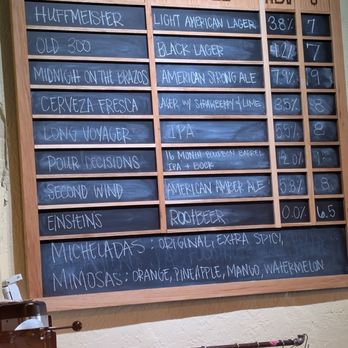 HUFFMEISTER LIGHT AMERICAN LAGER 3.8% 7
OLD 300 BLACK LAGER 4.2% 7
MIDNIGHT ON THE BRAZOS AMERICAN STRONG ALE 7.9% 9
CERVEZA FRESCA LAGER W/ STRAWBERRY & LIME 3.5% 8
LONG VOYAGER IPA 5.5% 8
POUR DECISIONS 16 MONTH BOURBON BARREL
IPA + BOCK 12.0% 13
SECOND WIND AMERICAN AMBER ALE 5.8% 8
EINSTEINS ROOTBEER 0.0% 6.5
MICHELADAS: ORIGINAL, EXTRA SPICY,
MIMOSAS: ORANGE, PINEAPPLE, MANGO, WATERMELON